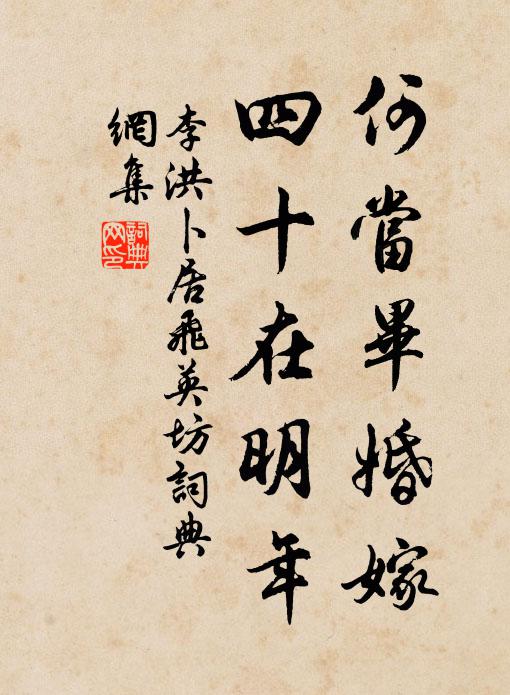 何當畢婚嫁
四十在明年
李洪卜居飛英坊詞典
網集
詞典
网印